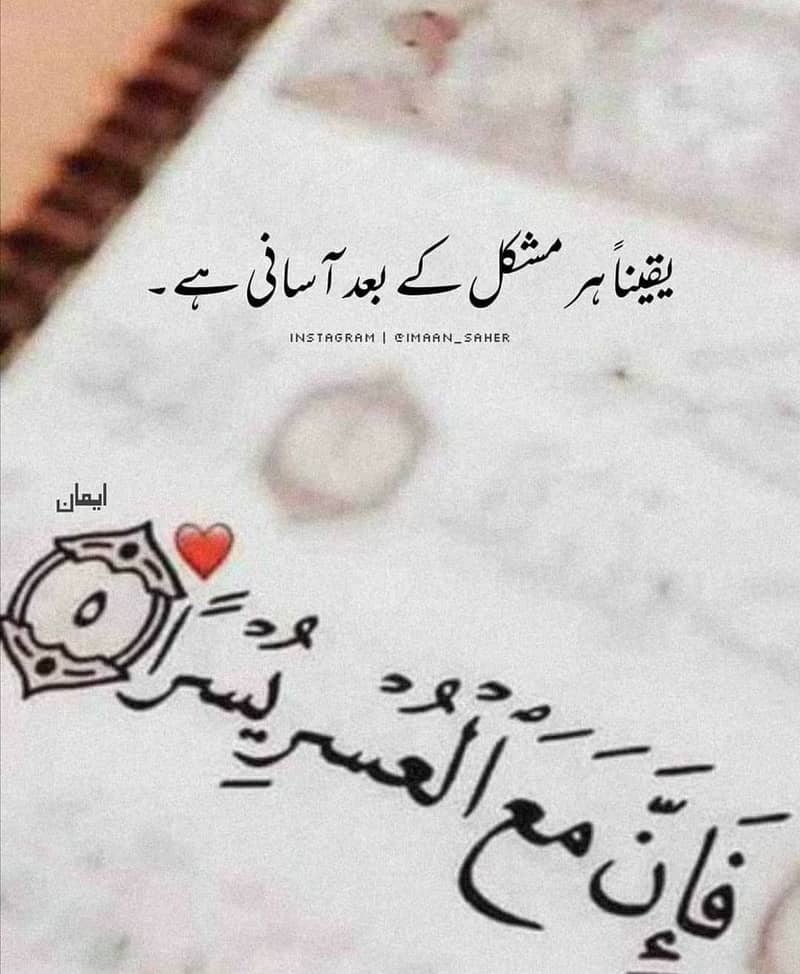 یقیناً ہر مشکل کے بعد آسانی ہے۔
INSTAGRAM | @IMAAN_SAHER
ایمان
فَإِنَّ مَعَ الْعُسْرِ يُسْرًا ٥